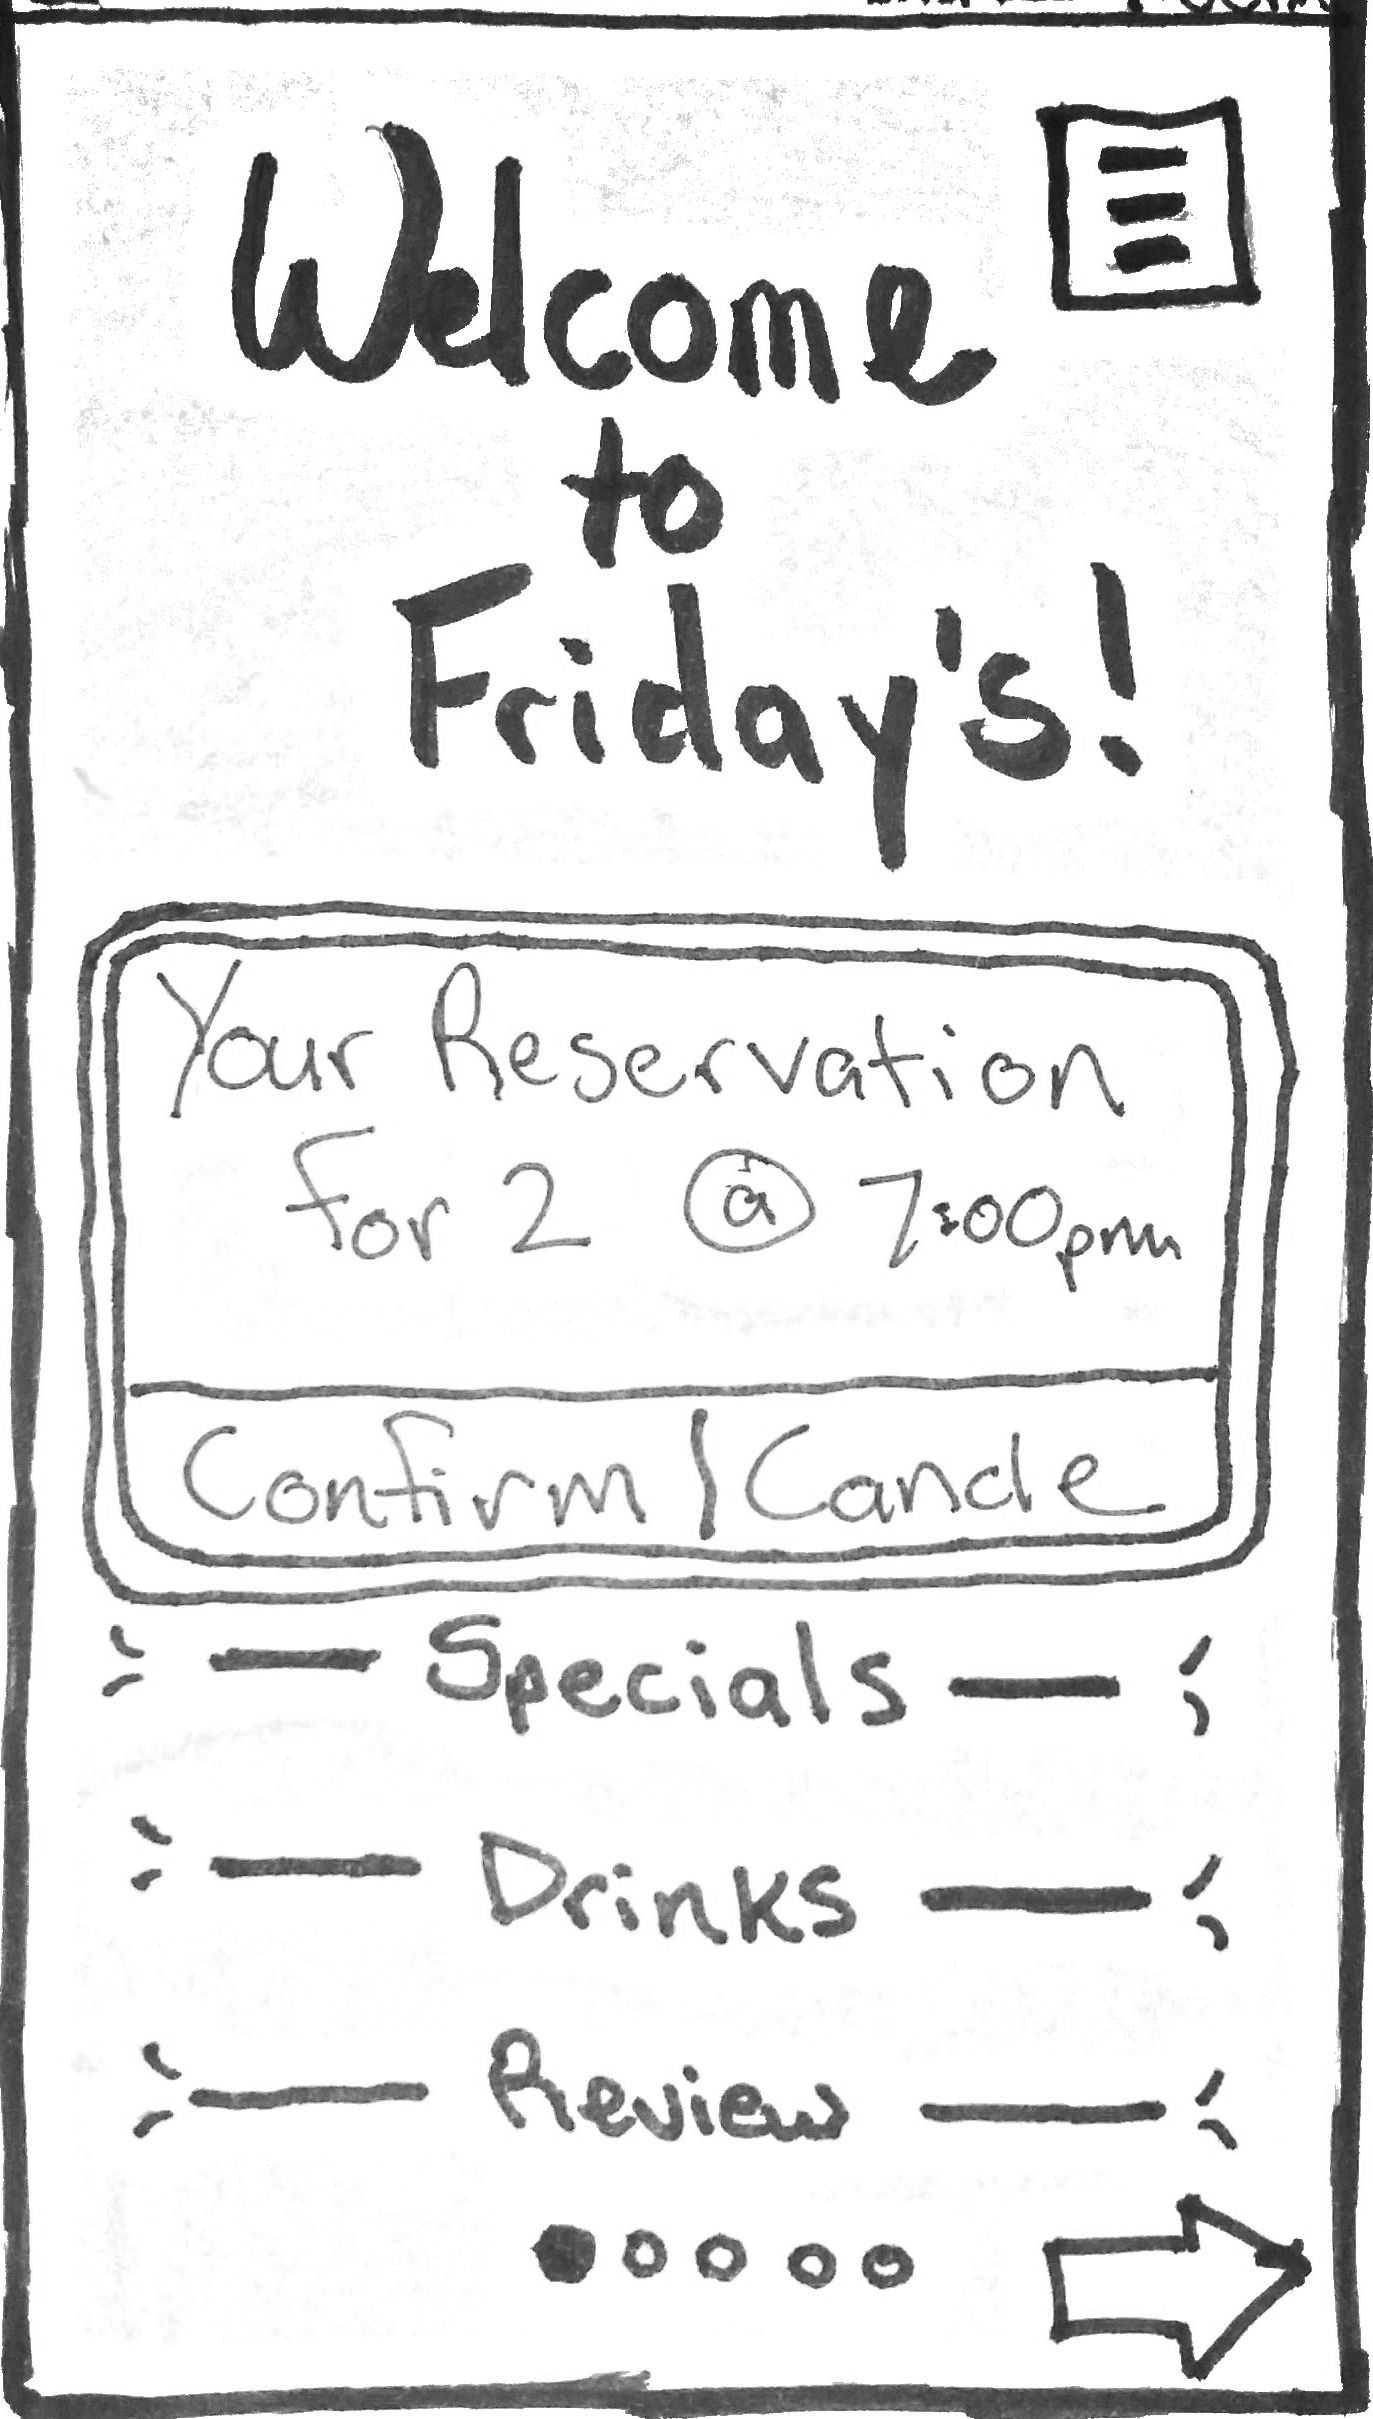 Welcome
to
Friday's!
Your Reservation
for 2 @ 7:00pm
Confirm | Cancle
Specials
Drinks
Review